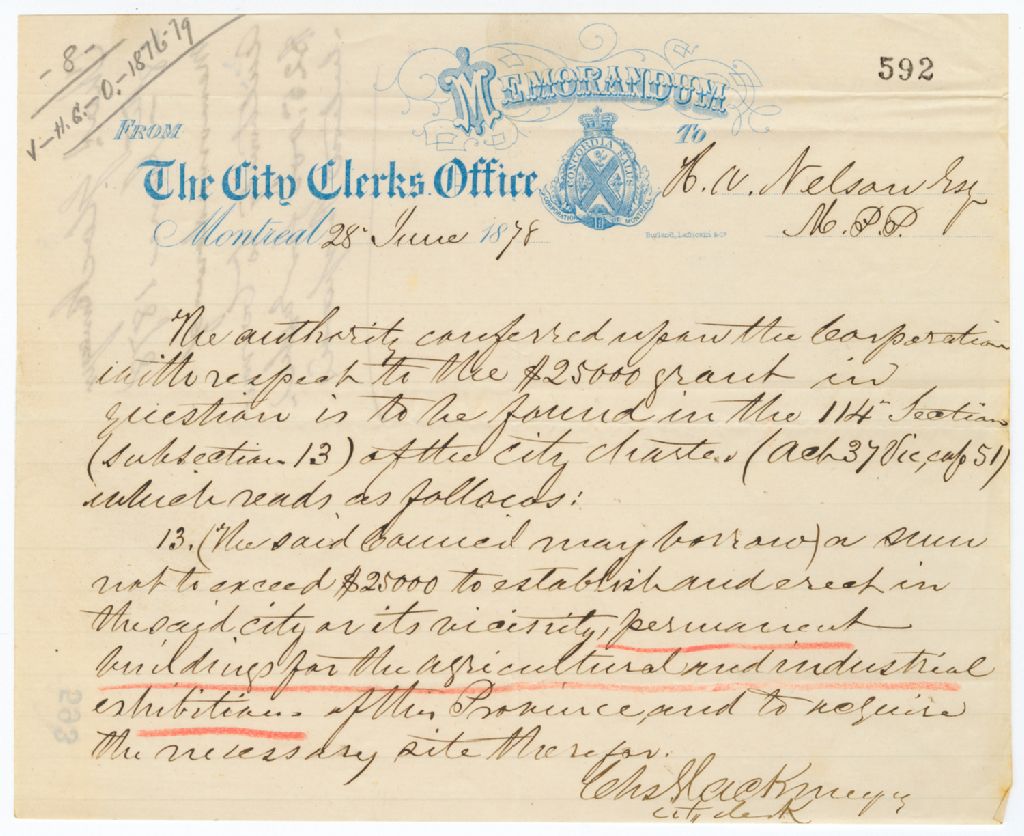 - 8 -
V - H. G. - O. - 1876-79
592
MEMORANDUM
FROM
To
The City Clerks Office
CONCORDIA SALUS
CORPORATION DE MONTREAL
H. A. Nelson Esq
M.P.P.
Montreal 28 June 1878
Burland, Lafricain & Co
The authority conferred upon the Corporation
with respect to the $25000 grant in
question is to be found in the 114th Section
(subsection 13) of the city charter (Act 37 Vic, cap 51)
which reads as follows:
13. (The said Council may borrow) a sum
not to exceed $25000 to establish and erect in
the said city or its vicinity, permanent
buildings for the agricultural and industrial
exhibitions of this Province, and to acquire
the necessary site therefor.
Chs Glackmeyer
City Clerk
593